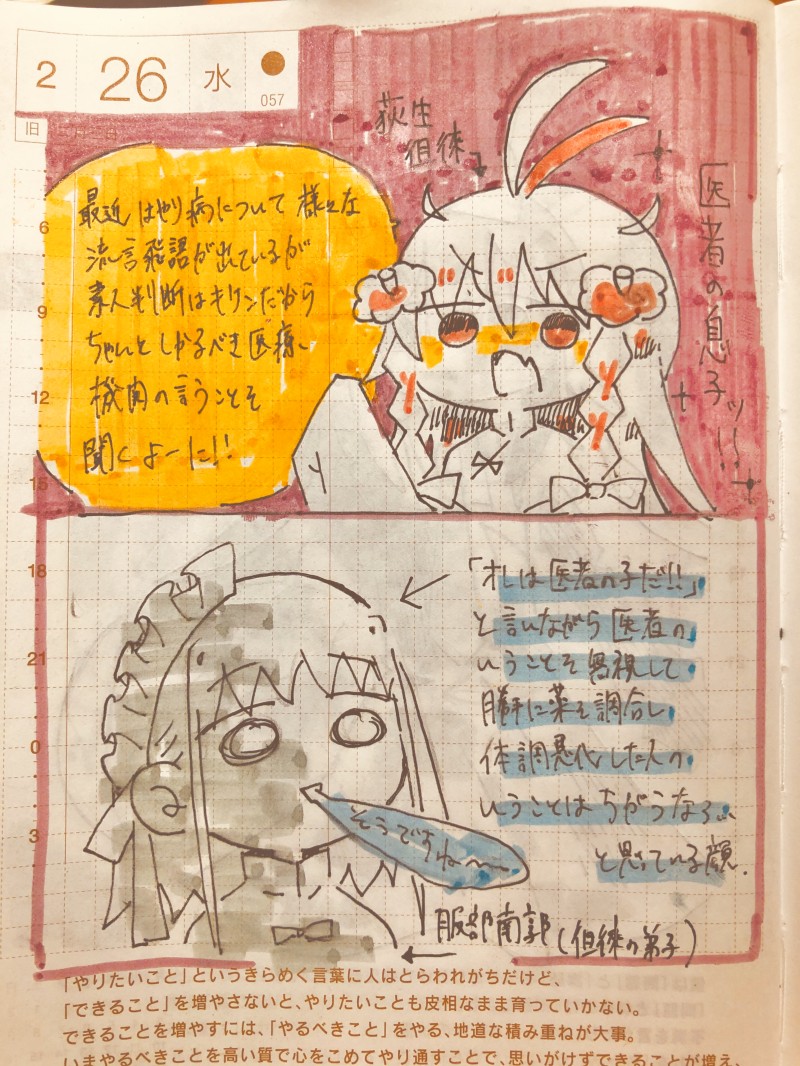 2
26
水
057
旧
荻生
徂徠
医者の息子ッ!!
最近はやり病について様々な
流言飛語が出ているが
素人判断はキケンだから
ちゃんとしかるべき医療
機関の言うことを
聞くよーに!!
6
9
12
15
18
21
0
3
「オレは医者の子だ!!」
と言いながら医者の
いうことを無視して
勝手に薬を調合し
体調悪化した人の
いうことはちがうなぁ…
と思っている顔.
そうですね〜
服部南郭(徂徠の弟子)
「やりたいこと」というきらめく言葉に人はとらわれがちだけど、
「できること」を増やさないと、やりたいことも皮相なまま育っていかない。
できることを増やすには、「やるべきこと」をやる、地道な積み重ねが大事。
いまやるべきことを高い質で心をこめてやり通すことで、思いがけずできることが増え、